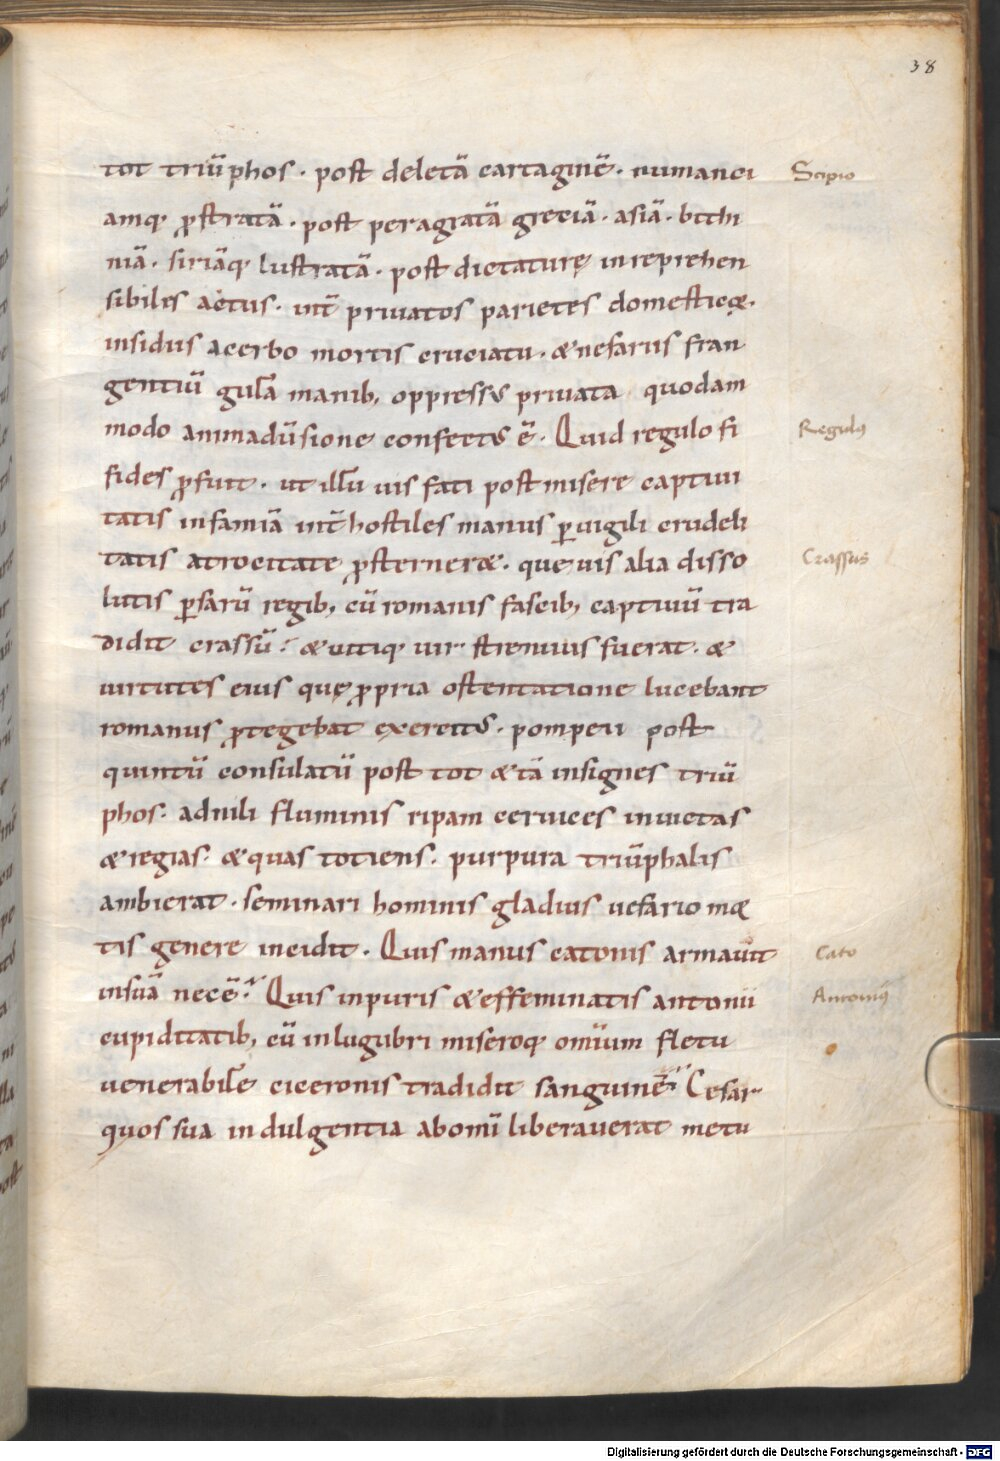 38
tot triūphos · post deletā cartaginē · numanci Scipio
amq; ꝓstratā · post peragratā greciā · asiā · bithi
niā · siriāq; lustratā · post dictaturę inreprehen
sibiles actus · int̄ priuatos parietes domesticę ·
insidiis acerbo mortis cruciatu · & nefariis fran
gentiū gulā manib; oppressꝰ priuata quodam
modo animadūsione confectꝰ ē · Quid regulo fi Regulus
fides ꝓfuit · ut illū uis fati post misere captiui
tatis infamiā int̄ hostiles manus ꝑuigili crudeli
tatis atrocitate ꝓsterner& · que uis alia disso Crassus
lutis ꝑsarū regib; cū romanis fascib; captiuū tra
didit crassū? & utiq; uir strenuus fuerat · &
uirtutes eius quę ꝓpria ostentatione lucebant
romanus ꝓtegebat exercitꝰ · pompeii post
quintū consulatū post tot & tā insignes triū
phos · ad nili fluminis ripam ceruices inuictas
& regias · & quas totiens · purpura triūphalis
ambierat · seminari hominis gladius uefario m&
tis genere incidit · Quis manus catonis armauit Cato
in suā necē? Quis inpuris & effeminatis antonii Antonius
cupiditatib; cū inlugubri miseroq; omiūm fletu
uenerabilē ciceronis tradidit sanguinē? Cesar
quos sua indulgentia abomī liberauerat metu
Digitalisierung gefördert durch die Deutsche Forschungsgemeinschaft - DFG